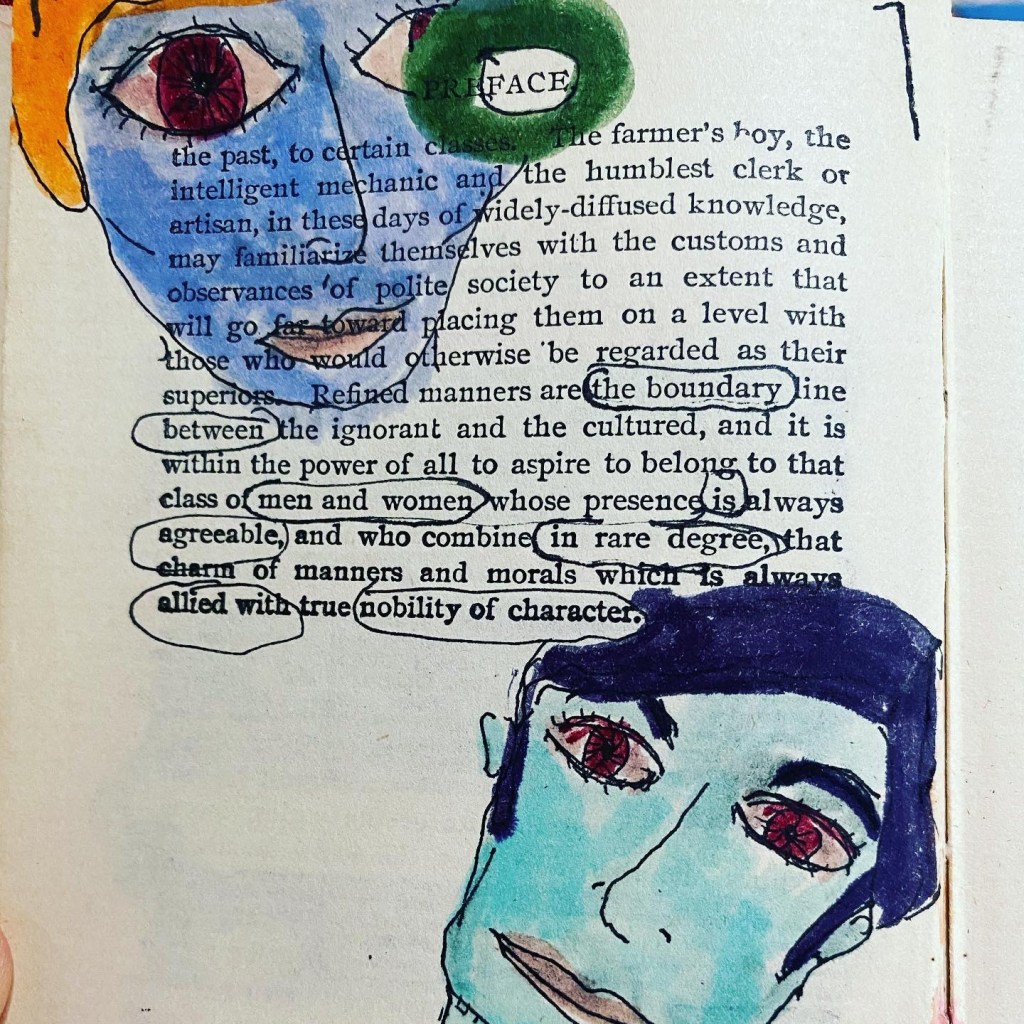 PREFACE.
the past, to certain classes. The farmer's boy, the
intelligent mechanic and the humblest clerk or
artisan, in these days of widely-diffused knowledge,
may familiarize themselves with the customs and
observances of polite society to an extent that
will go far toward placing them on a level with
those who would otherwise be regarded as their
superiors. Refined manners are the boundary line
between the ignorant and the cultured, and it is
within the power of all to aspire to belong to that
class of men and women whose presence is always
agreeable, and who combine in rare degree, that
charm of manners and morals which is always
allied with true nobility of character.